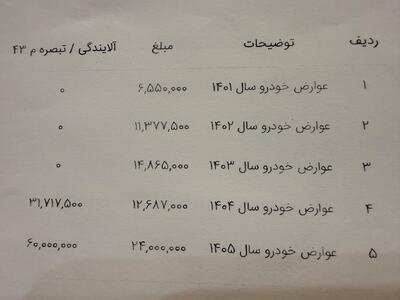 ردیف توضیحات مبلغ آلایندگی / تبصره م ۴۳
۱ عوارض خودرو سال ۱۴۰۱ ۶,۵۵۰,۰۰۰ ۰
۲ عوارض خودرو سال ۱۴۰۲ ۱۱,۳۷۷,۵۰۰ ۰
۳ عوارض خودرو سال ۱۴۰۳ ۱۴,۸۶۵,۰۰۰ ۰
۴ عوارض خودرو سال ۱۴۰۴ ۱۲,۶۸۷,۰۰۰ ۳۱,۷۱۷,۵۰۰
۵ عوارض خودرو سال ۱۴۰۵ ۲۴,۰۰۰,۰۰۰ ۶۰,۰۰۰,۰۰۰